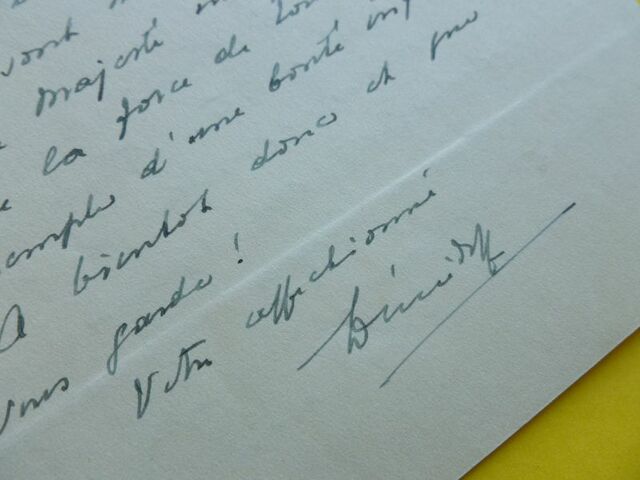 vont
Majesté
la force de
exemple d'une bonté
A bientôt donc et que
vous garde!
Votre affectionné